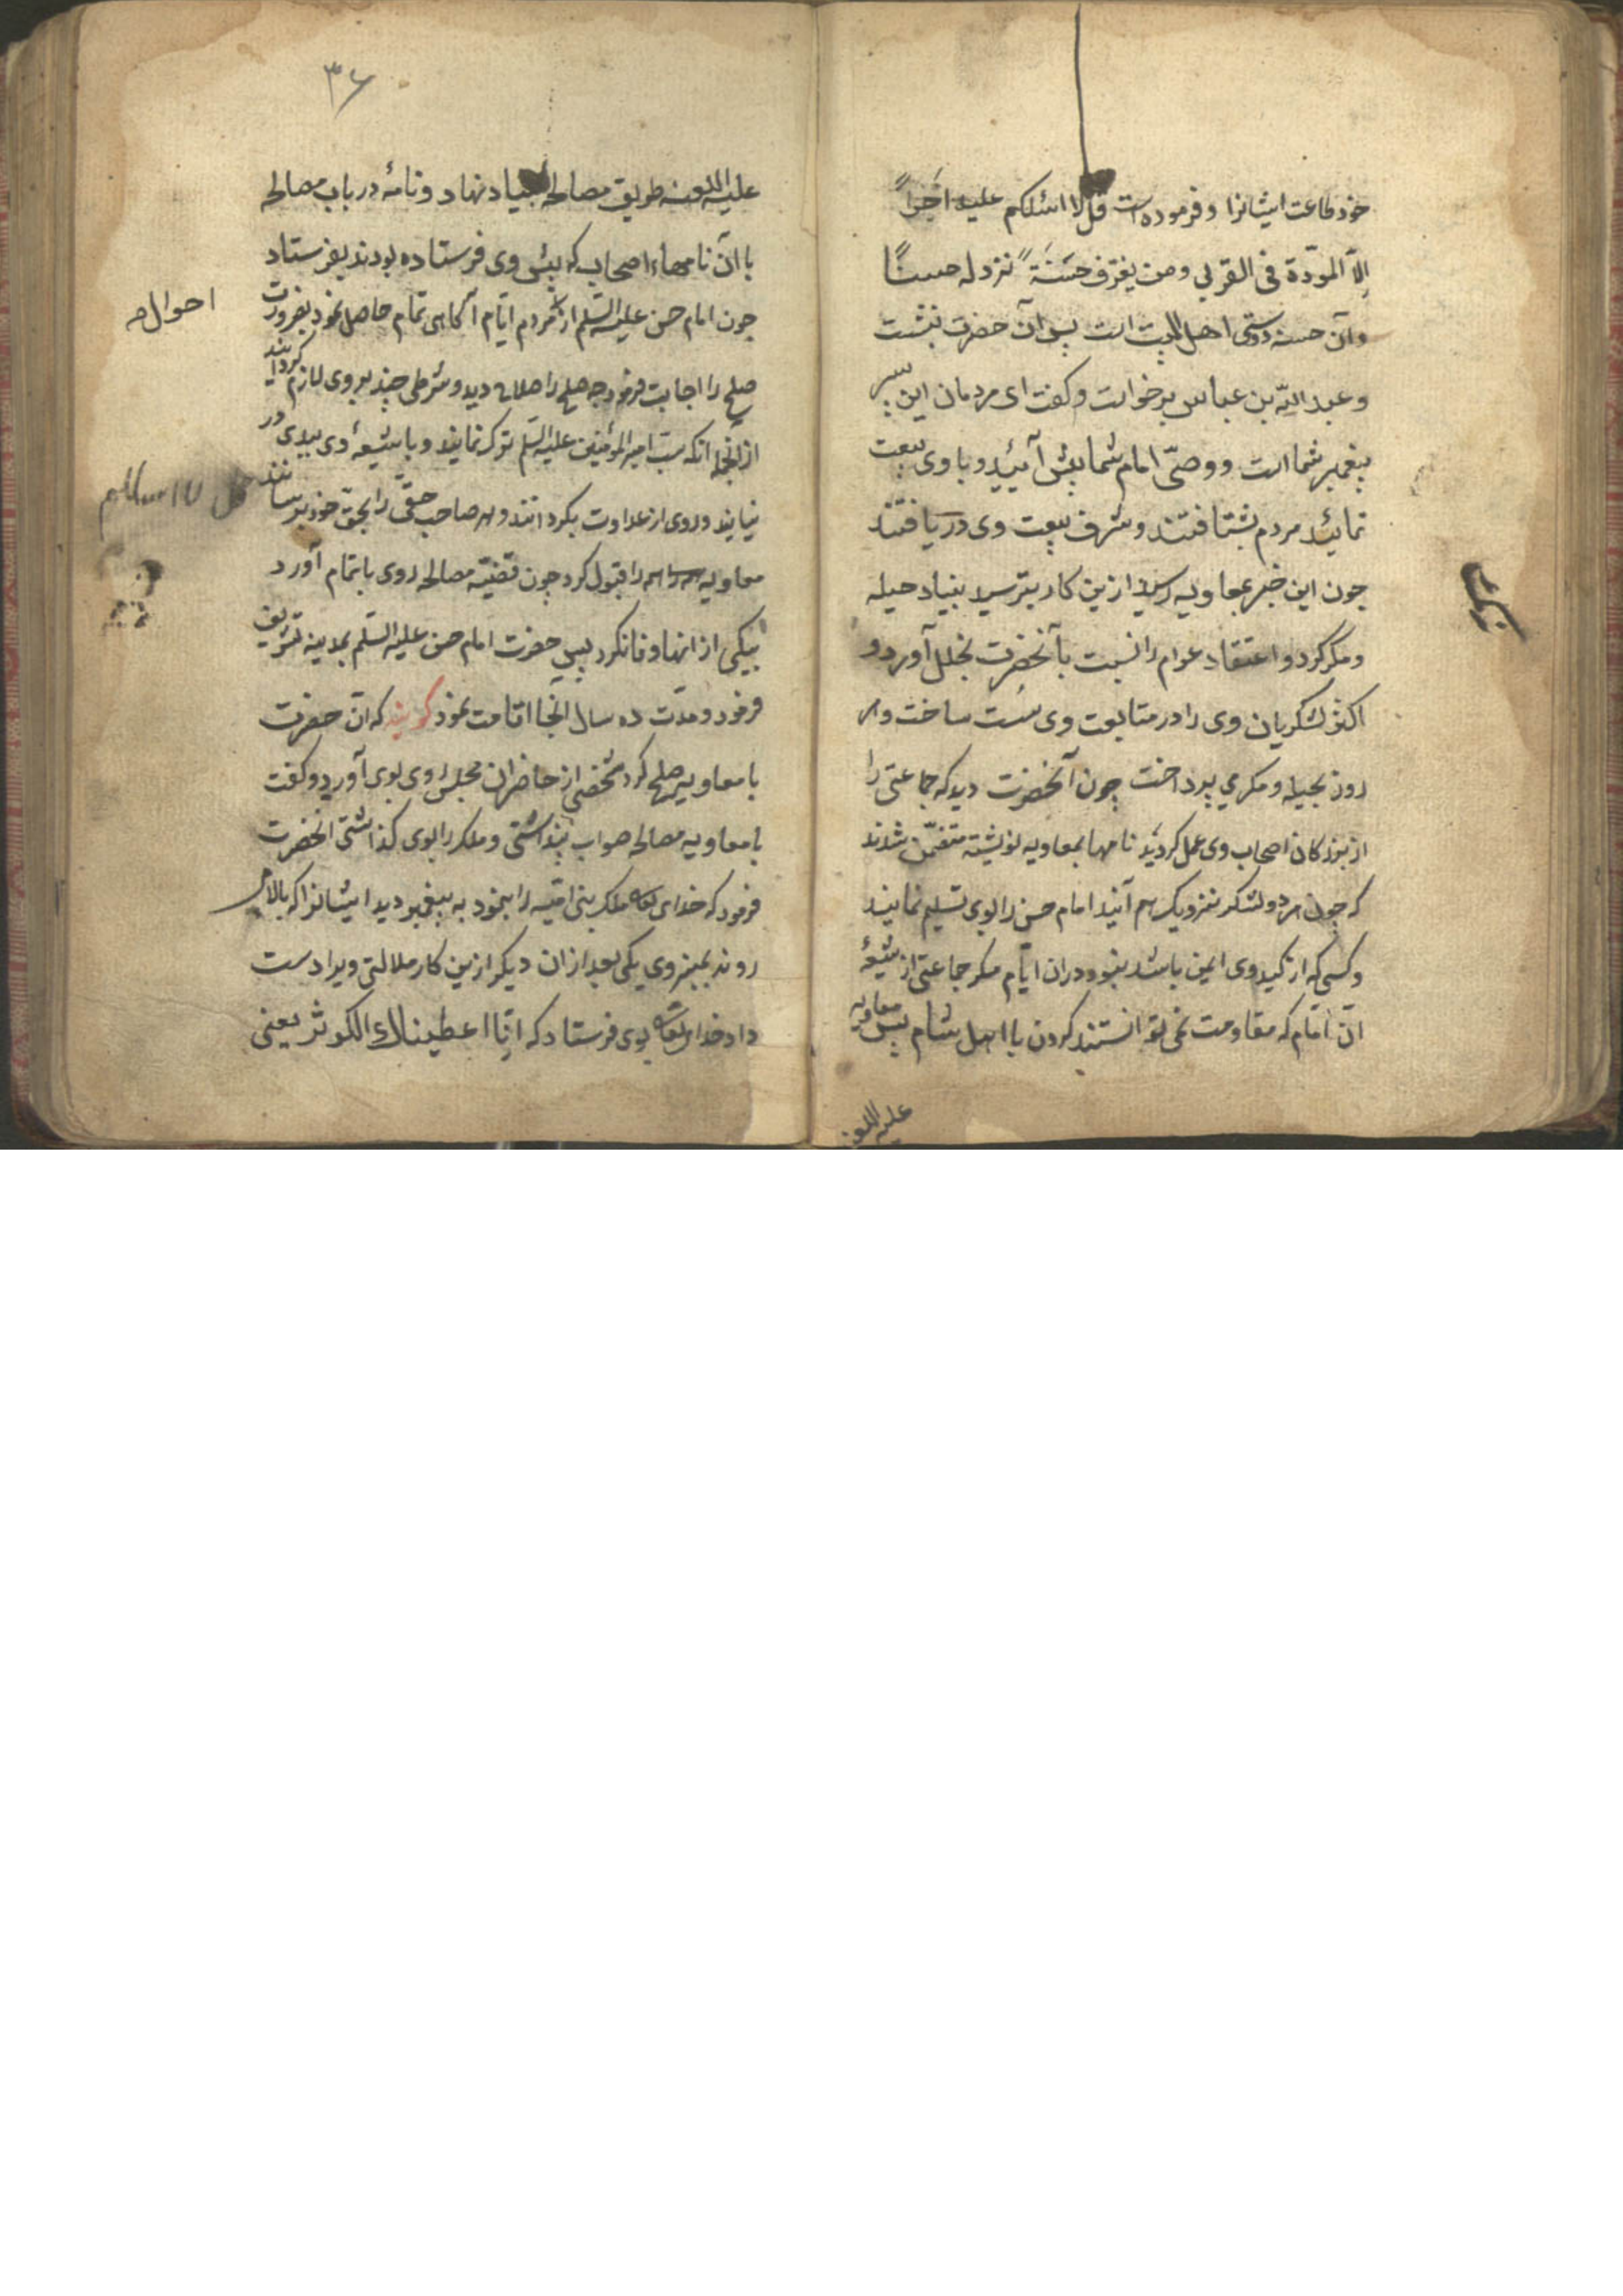 خود طاعت ایشانرا و فرموده است قل لا اسئلکم علیه اجراً
إلّا المودّة فی القربی ومن یقترف حسنةً نزد له حسناً
وآن حسنه دوستی اهل البیت است پس آن حضرت بنشست
و عبد اللّه بن عباس برخواست و کفت ای مردمان این پسر
پیغمبر شما است ووصیّ امام شما پیش آئید و با وی بیعت
نمائید مردم بشتافتند و شرف بیعت وی دریافتند
چون این خبر بمعاویه رسید ازین کار بترسید بنیاد حیله
ومکر کرد و اعتقاد عوام را نسبت بآنحضرت بخلل آورد و
اکثر لشکریان وی را در متابعت وی سُست ساخت وهر
روز بحیله و مکری پرداخت چون آنحضرت دید که جماعتی را
از بزرکان اصحاب وی عمل کردید نامها بمعاویه نوشته متضمّن شدند
که چون هر دو لشکر نزدیک هم آیند امام حسن را بوی تسلیم نمایند
و کسی که از کید وی ایمن باشد نبود دران ایّام مکر جماعتی از شیعهٔ
آن امام که مقاومت نمی توانستند کردن با اهل شام پس معاویه
علیه اللعنه
۳۶
علیه اللعنه طریق مصالحه بنیاد نهاد و نامهٔ در باب مصالحه
با آن نامهاء اصحاب که پیش وی فرستاده بودند بفرستاد
چون امام حسن علیه السّلم از مردم ایّام آکاهی تمام حاصل نمود بضرورت
صلح را اجابت فرمود چه صلح را صلاح دید و شرطی چند بر وی لازم کردانید
از انجمله آنکه سبّ امیر المؤمنین علیه السّلم ترک نمایند و با شیعهٔ وی ببدی در
نیایند و روی از عداوت بکردانند و هر صاحب حقّی را بحقّ خود برسانند
معاویه همه را قبول کرد چون قضیّه مصالحه روی باتمام آورد
بیکی از انها وفا نکرد پس حضرت امام حسن علیه السّلم بمدینه تشریف
فرمود و مدّت ده سال آنجا اقامت نمود کویند که آن حضرت
با معاویه صلح کرد شخصی از حاضران مجلس روی بوی آورد و کفت
با معاویه مصالحه صواب پنداشتی و ملک را بوی کذاشتی آنحضرت
فرمود که خدای تعالی ملک بنی امیّه را بنمود به پیغمبر دید ایشانرا که بالا می
روند بمنبر وی یکی بعد از ان دیکر ازین کار ملالتی ویرا دست
داد خدای تعالی بوی فرستاد که انّا اعطیناك الکوثر یعنی
احوال